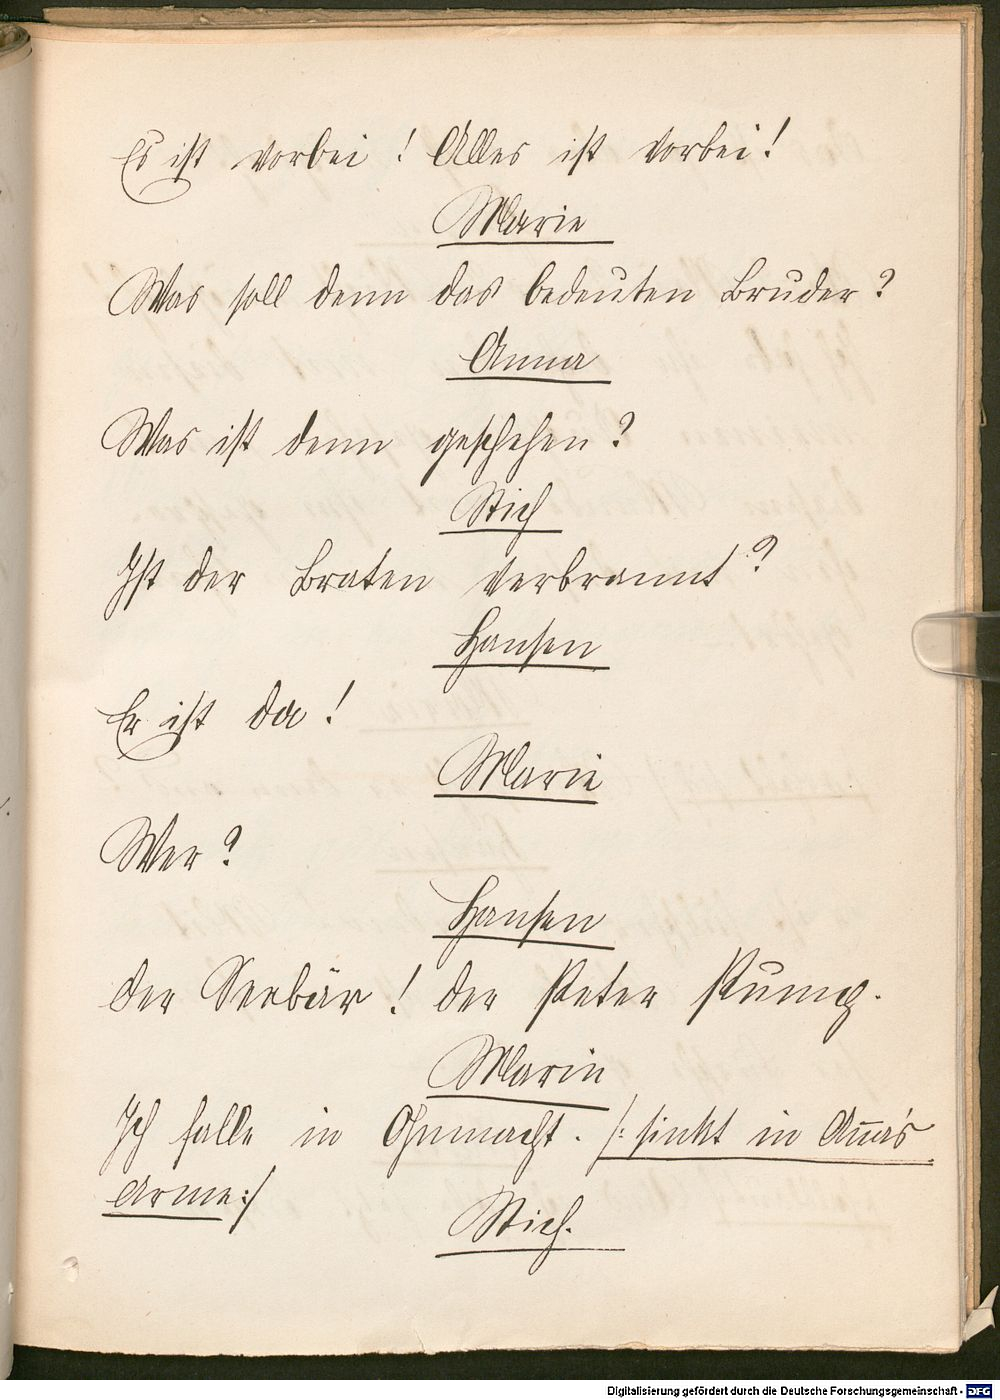 Es ist vorbei! Alles ist vorbei!
Marie
Was soll denn das bedeuten Bruder?
Anna
Was ist denn geschehen?
Stich
Ist der Braten verbrannt?
Hansen
Er ist da!
Marie
Wer?
Hansen
der Seebär! der Peter Pump.
Marie
Ich falle in Ohnmacht. /: sinkt in Anna's
Arme :/
Stich.
Digitalisierung gefördert durch die Deutsche Forschungsgemeinschaft - DFG